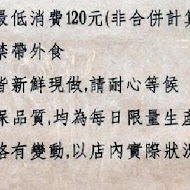 最低消費120元(非合併計算
禁帶外食
皆新鮮現做,請耐心等候
保品質,均為每日限量生產
格有變動,以店內實際狀況